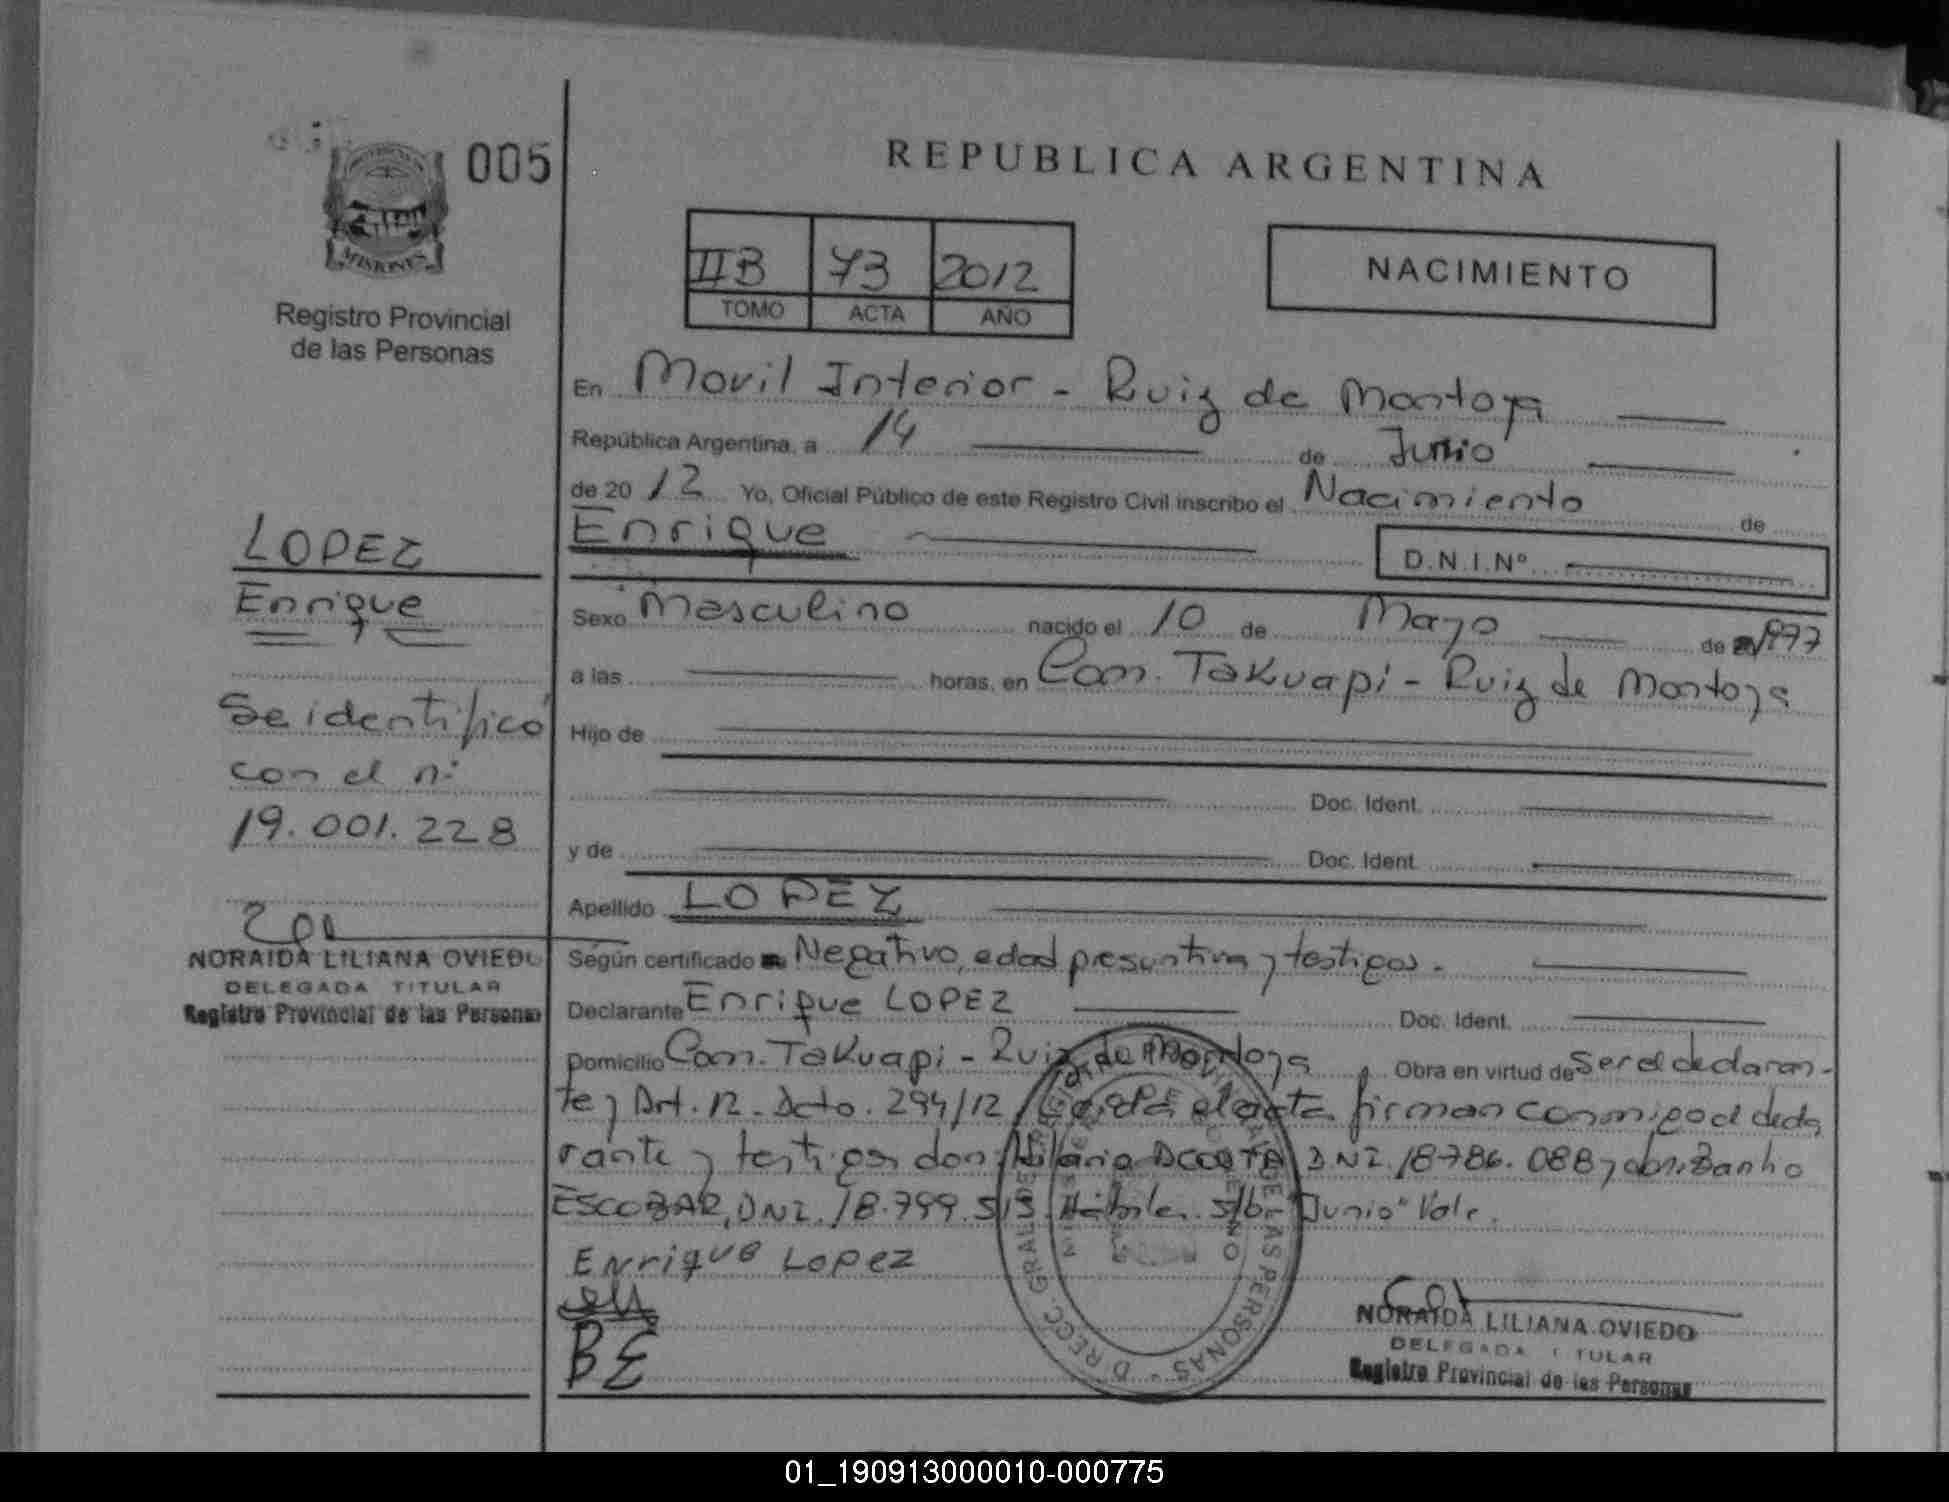 005
MISIONES
Registro Provincial
de las Personas
REPUBLICA ARGENTINA
IIB 73 2012
TOMO ACTA AÑO
NACIMIENTO
En Movil Interior - Ruiz de Montoya
República Argentina, a 14 de Junio
de 2012 Yo, Oficial Público de este Registro Civil inscribo el Nacimiento de
Enrique
D.N.I.Nº
Sexo Masculino nacido el 10 de Mayo de 1977
a las horas, en Com. Takuapi - Ruiz de Montoya
Hijo de
Doc. Ident.
y de Doc. Ident.
Apellido LOPEZ
Según certificado Negativo, edad presuntiva y testigos.
Declarante Enrique LOPEZ Doc. Ident.
Domicilio Com. Takuapi - Ruiz de Montoya Obra en virtud de ser el declaran-
te y Art. 12 - Dcto. 294/12 Leida el acta firman conmigo el decla
rante y testigos don Hilario ACOSTA DNI. 18786.088 y don Banho
ESCOBAR, DNI. 18.799.513. Hábiles. s/b "Junio" Vale.
Enrique Lopez
BE
NORAIDA LILIANA OVIEDO
DELEGADA TITULAR
Registro Provincial de las Personas
LOPEZ
Enrique
Se identificó
con el nº
19.001.228
NORAIDA LILIANA OVIEDO
DELEGADA TITULAR
Registro Provincial de las Personas
01_190913000010-000775